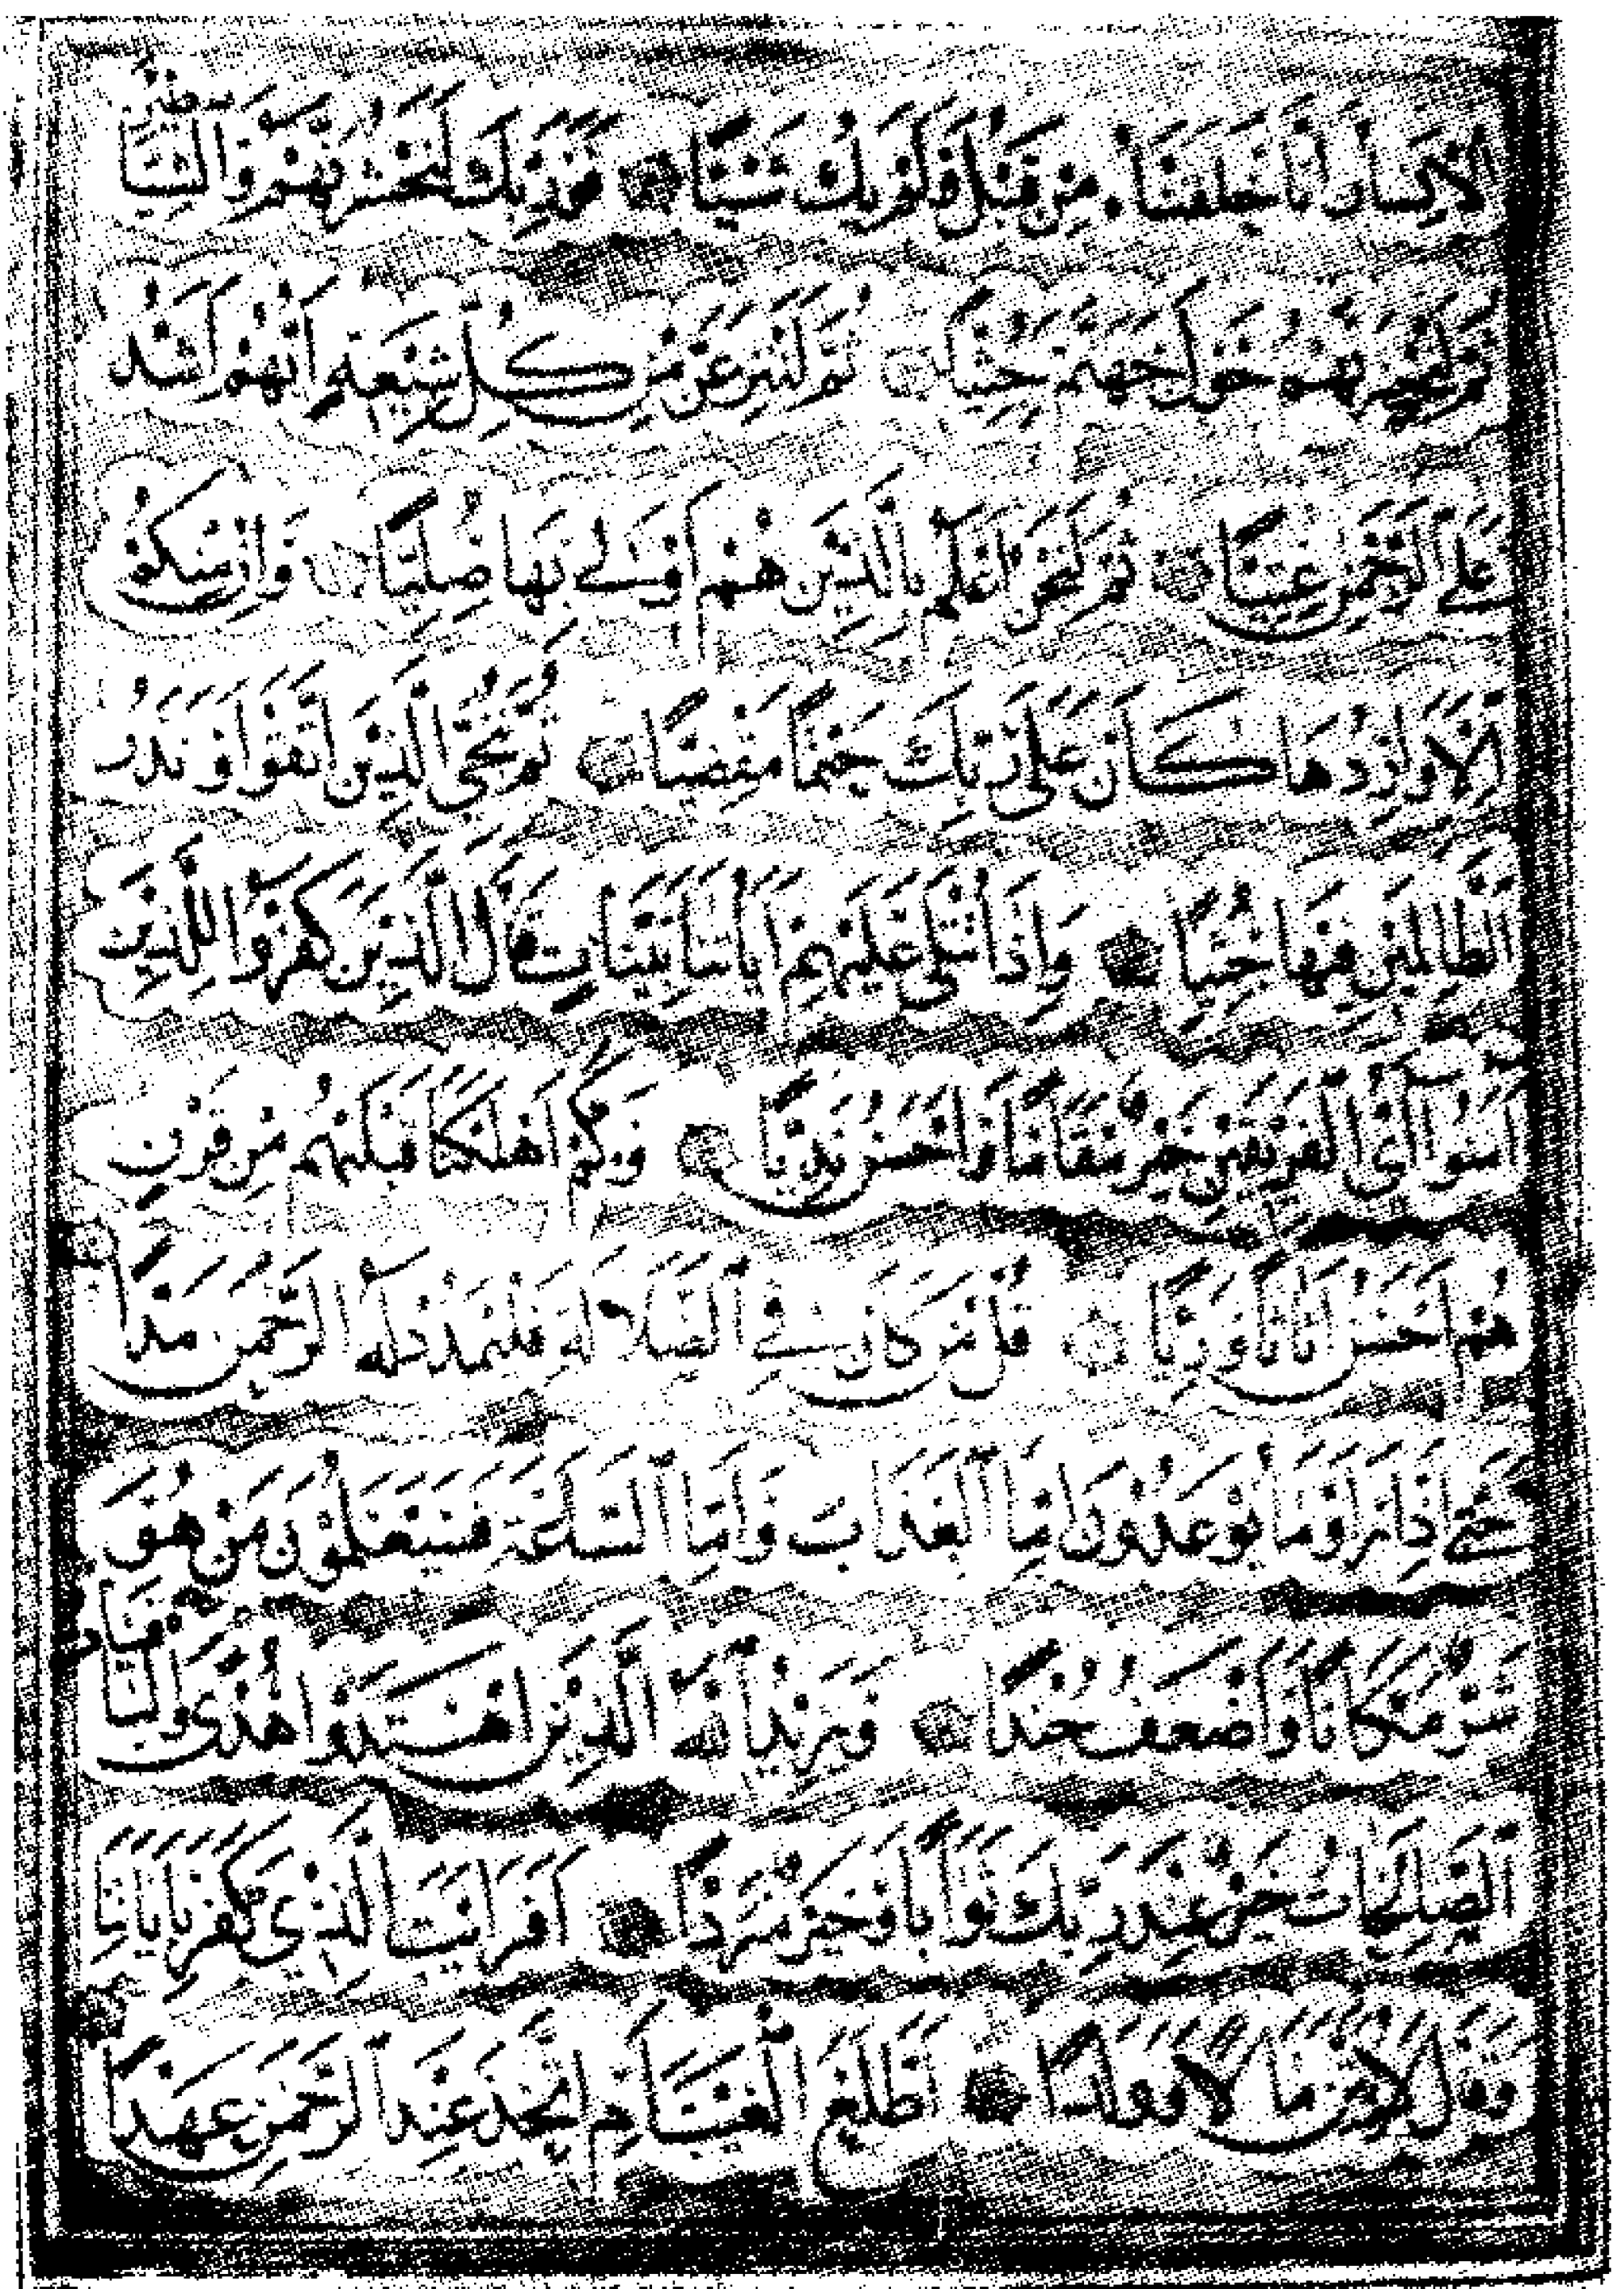 الْإِنْسَانُ أَنَّا خَلَقْنَاهُ مِنْ قَبْلُ وَلَمْ يَكُ شَيْئًا ۞ فَوَرَبِّكَ لَنَحْشُرَنَّهُمْ وَالشَّيَاطِينَ
ثُمَّ لَنُحْضِرَنَّهُمْ حَوْلَ جَهَنَّمَ جِثِيًّا ۞ ثُمَّ لَنَنْزِعَنَّ مِنْ كُلِّ شِيعَةٍ أَيُّهُمْ أَشَدُّ
عَلَى الرَّحْمٰنِ عِتِيًّا ۞ ثُمَّ لَنَحْنُ أَعْلَمُ بِالَّذِينَ هُمْ أَوْلَى بِهَا صِلِيًّا ۞ وَإِنْ مِنْكُمْ
إِلَّا وَارِدُهَا كَانَ عَلَى رَبِّكَ حَتْمًا مَقْضِيًّا ۞ ثُمَّ نُنَجِّي الَّذِينَ اتَّقَوْا وَنَذَرُ
الظَّالِمِينَ فِيهَا جِثِيًّا ۞ وَإِذَا تُتْلَى عَلَيْهِمْ آيَاتُنَا بَيِّنَاتٍ قَالَ الَّذِينَ كَفَرُوا لِلَّذِينَ
آمَنُوا أَيُّ الْفَرِيقَيْنِ خَيْرٌ مَقَامًا وَأَحْسَنُ نَدِيًّا ۞ وَكَمْ أَهْلَكْنَا قَبْلَهُمْ مِنْ قَرْنٍ
هُمْ أَحْسَنُ أَثَاثًا وَرِئْيًا ۞ قُلْ مَنْ كَانَ فِي الضَّلَالَةِ فَلْيَمْدُدْ لَهُ الرَّحْمٰنُ مَدًّا ۞
حَتَّى إِذَا رَأَوْا مَا يُوعَدُونَ إِمَّا الْعَذَابَ وَإِمَّا السَّاعَةَ فَسَيَعْلَمُونَ مَنْ هُوَ
شَرٌّ مَكَانًا وَأَضْعَفُ جُنْدًا ۞ وَيَزِيدُ اللَّهُ الَّذِينَ اهْتَدَوْا هُدًى وَالْبَاقِيَاتُ
الصَّالِحَاتُ خَيْرٌ عِنْدَ رَبِّكَ ثَوَابًا وَخَيْرٌ مَرَدًّا ۞ أَفَرَأَيْتَ الَّذِي كَفَرَ بِآيَاتِنَا
وَقَالَ لَأُوتَيَنَّ مَالًا وَوَلَدًا ۞ أَطَّلَعَ الْغَيْبَ أَمِ اتَّخَذَ عِنْدَ الرَّحْمٰنِ عَهْدًا ۞